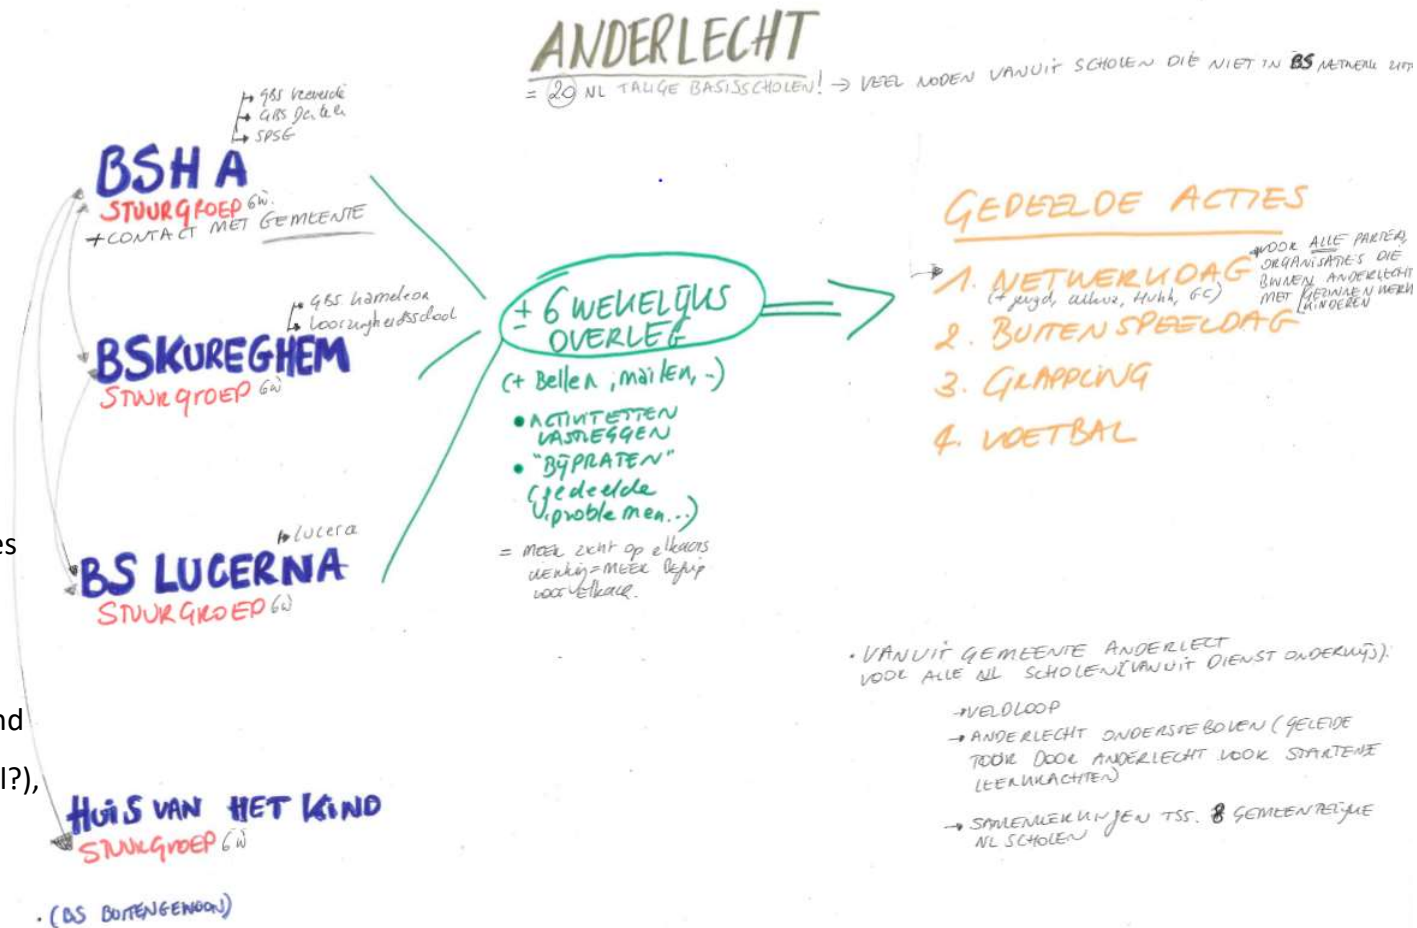 ANDERLECHT
= 20 NL TALIGE BASISSCHOLEN! → VEEL NODEN VANUIT SCHOLEN DIE NIET IN BS NETWERK
GBS
GBS
BSHA
STUURGROEP 6W.
+ CONTACT MET GEMEENTE
GBS Kameleon
BSKUREGHEM
STUURGROEP 6W
es
BS LUCERNA
STUURGROEP 6W
nd
l?),
HUIS VAN HET KIND
STUURGROEP 6W
• (BS BUITENGEWOON)
± 6 WEKELIJKS
OVERLEG
(+ Bellen, mailen, ..)
• ACTIVITEITEN
VASTLEGGEN
• "BIJPRATEN"
(gedeelde
problemen...)
= MEER zicht op elkaars
werking = MEER Begrip
voor elkaar.
GEDEELDE ACTIES
→ 1. NETWERKDAG
(+ jeugd, HvhK, GC)
→ VOOR ALLE PARTERS,
ORGANISATIES DIE
BINNEN ANDERLECHT
MET GEZINNEN WERK
KINDEREN
2. BUITENSPEELDAG
3. GRAPPLING
4. VOETBAL
• VANUIT GEMEENTE ANDERLECT
VOOR ALLE NL SCHOLEN (VANUIT DIENST ONDERWIJS):
→ VELDLOOP
→ ANDERLECHT ONDERSTEBOVEN (GELEIDE
TOUR DOOR ANDERLECHT VOOR STARTENE
LEERKRACHTEN)
→ SAMENWERKINGEN TSS. 8 GEMEENTELIJKE
NL SCHOLEN